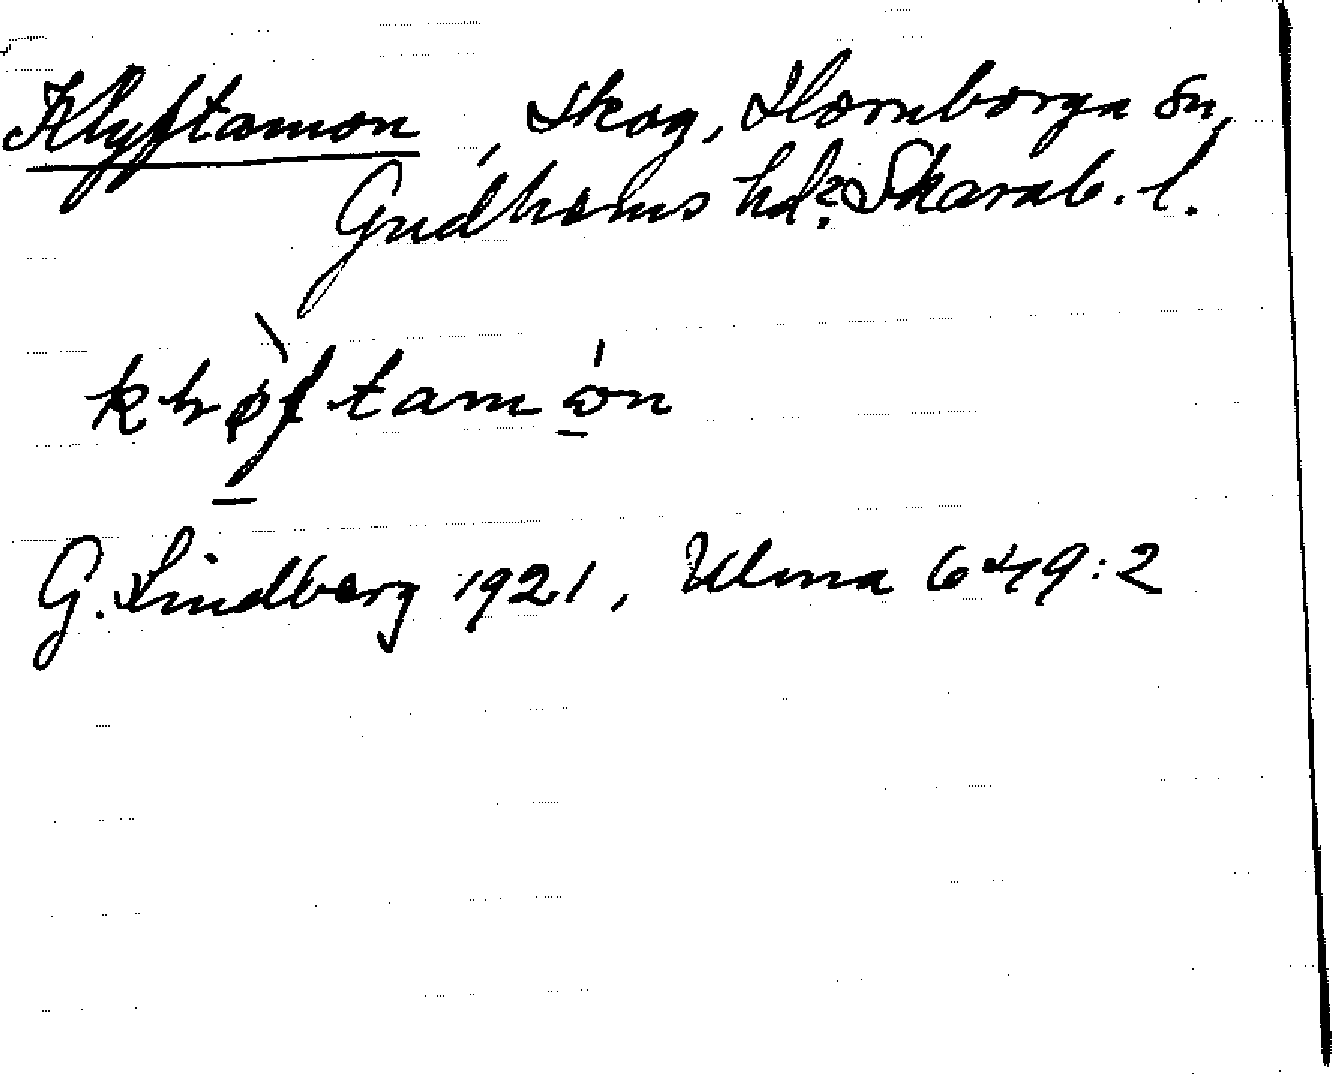 Klyftamon, Skog, Hornborga sn,
Gudhems hd. Skarab. l.
G. Lindberg 1921, Ulma 649:2